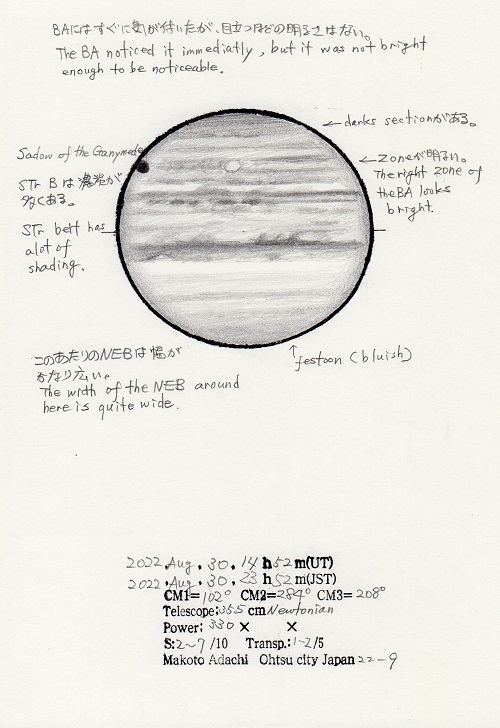 BAにはすぐに気が付いたが、目立つほどの明るさはない。
The BA noticed it immediatly, but it was not bright
enough to be noticeable.
← darks sectionがある。
Sadow of the Ganymede
← Zoneが明るい。
The right zone of
the BA looks
bright.
STr B は濃淡が
多くある。
STr belt has
alot of
shading.
このあたりのNEBは幅が
かなり広い。
The width of the NEB around
here is quite wide.
↑ festoon (bluish)
2022.Aug.30.14h52m(UT)
2022.Aug.30.23h52m(JST)
CM1=102° CM2=284° CM3=208°
Telescope:35.5cm Newtonian
Power: 330× ×
S:2~7/10 Transp.:1-2/5
Makoto Adachi Ohtsu city Japan 22-9